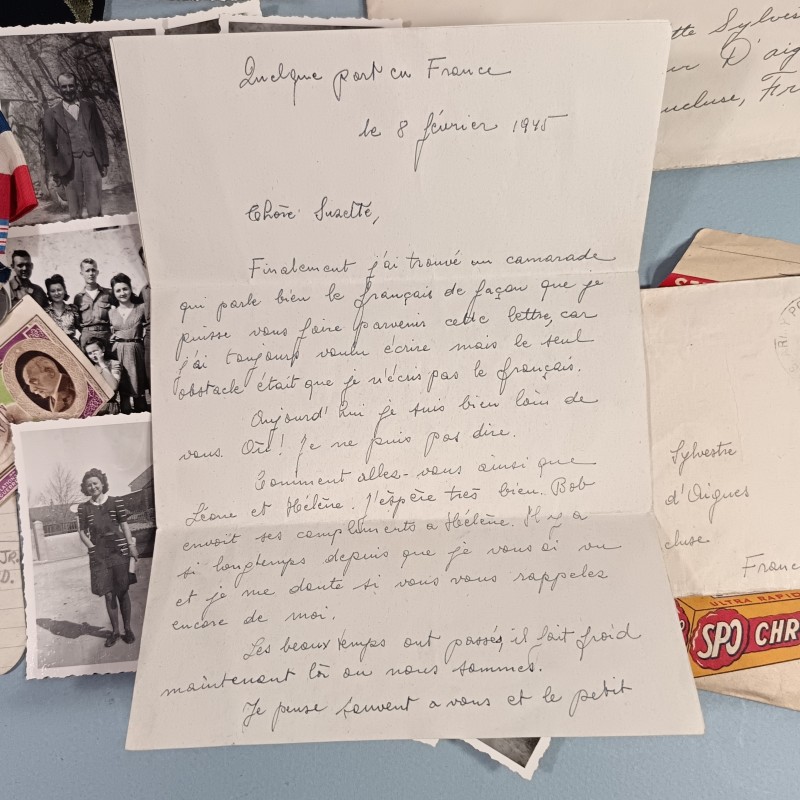 Quelque part en France
le 8 février 1945
Chère Suzette,
Finalement j'ai trouvé un camarade
qui parle bien le français de façon que je
puisse vous faire parvenir cette lettre, car
j'ai toujours voulu écrire mais le seul
obstacle était que je n'écris pas le français.
Aujourd'hui je suis bien loin de
vous. Où! Je ne puis pas dire.
Comment allez-vous ainsi que
Léone et Hélène. J'éspère très bien. Bob
envoit ses compliments a Hélène. Il y a
si longtemps depuis que je vous ai vu
et je me doute si vous vous rappelez
encore de moi.
Les beaux temps ont passés, il fait froid
maintenant là ou nous sommes.
Je pense souvent a vous et le petit
tte Sylves
D'aig
ucluse, Fr
Sylvestre
d'Aigues
cluse
Franc
ULTRA RAPID
SPO CHR
JR.
D.